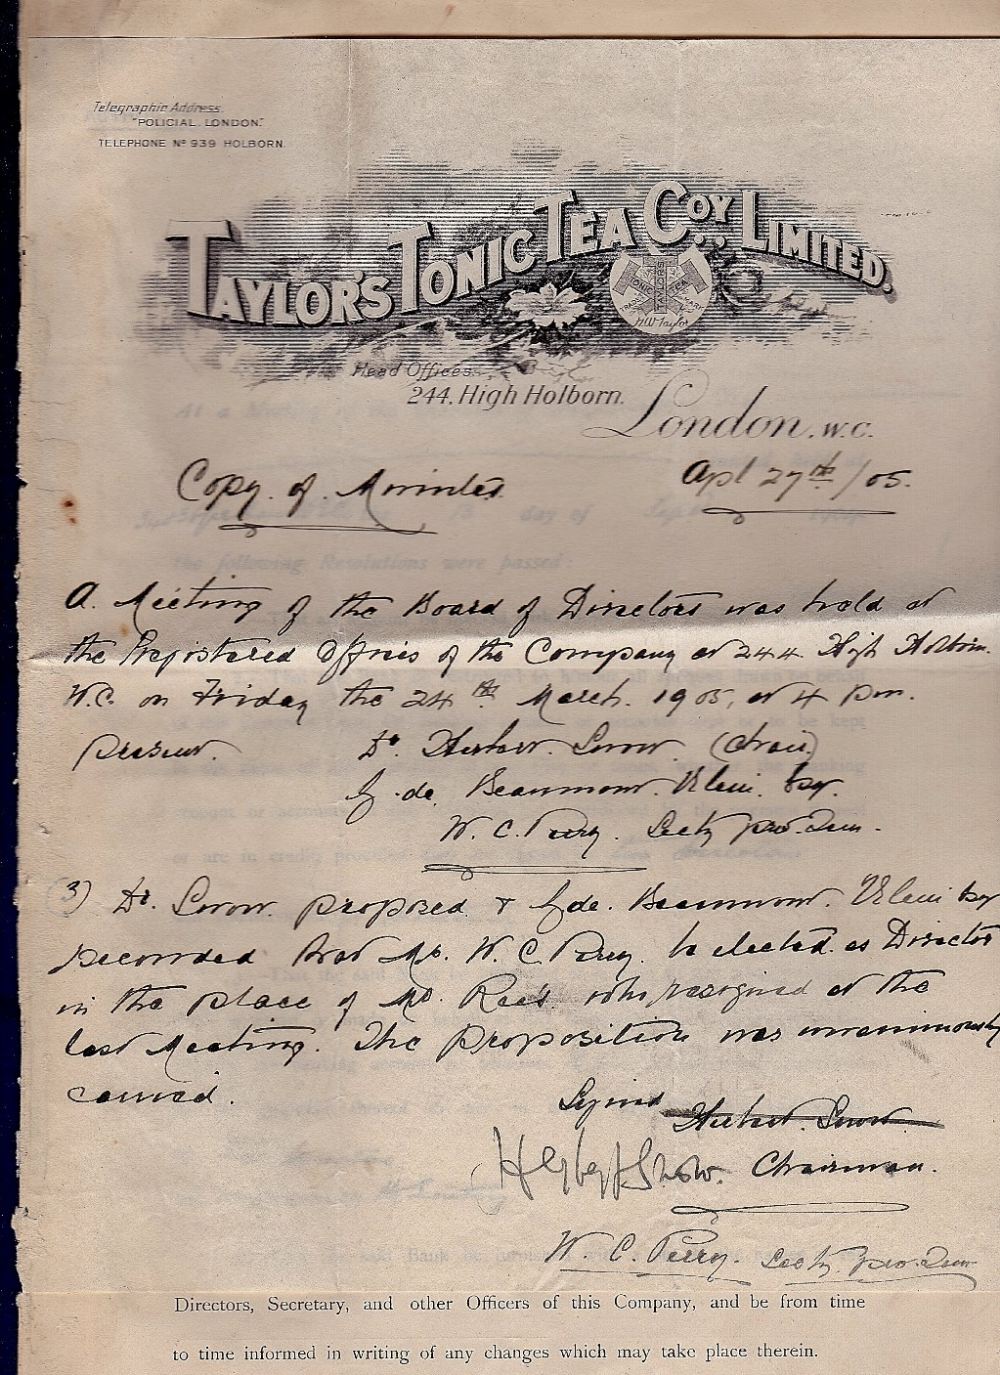 Telegraphic Address.
"POLICIAL. LONDON."
TELEPHONE Nº 939 HOLBORN.
TAYLOR'S TONIC TEA COY LIMITED.
TONIC TEA
Head Offices
244, High Holborn.
London. W.C.
At a Meeting
Copy of Minutes
Apl 27th /05.
day of
the following Resolutions were passed:
A Meeting of the Board of Directors was held at
the Registered Offices of the Company at 244 High Holborn
W.C. on Friday the 24th March. 1905, at 4 pm.
Present. Dr Herbert Snow (Chair)
de Beaumont Klein. Esq.
W. C. Perry. Secty pro. tem.
(3) Dr. Snow proposed & de. Beaumont. Klein Esq
seconded that Mr. W. C. Perry be elected as Director
in the place of Mr. Rees who resigned at the
last Meeting. The proposition was unanimously
carried.
Signed Herbert Snow
Snow. Chairman.
W. C. Perry. Secty pro. tem
Directors, Secretary, and other Officers of this Company, and be from time
to time informed in writing of any changes which may take place therein.